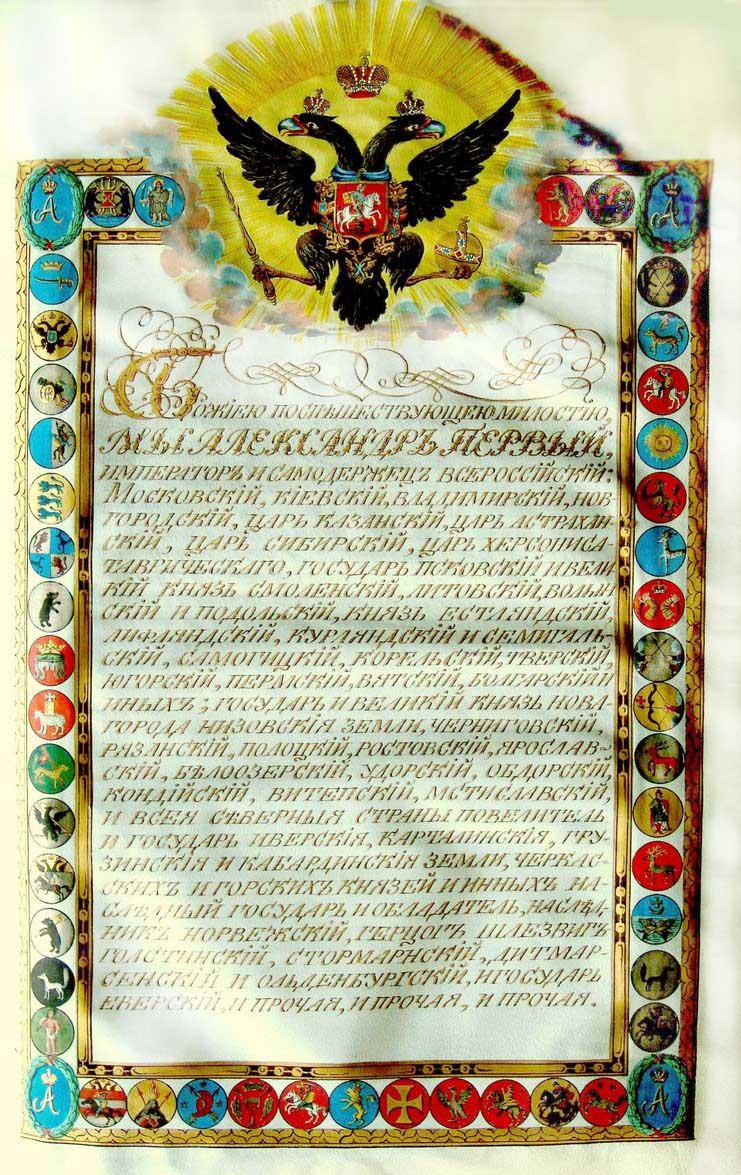 БОЖІЕЮ ПОСПѢШЕСТВУЮЩЕЮ МИЛОСТІЮ,
МЫ АЛЕКСАНДРЪ ПЕРВЫЙ,
ИМПЕРАТОРЪ И САМОДЕРЖЕЦЪ ВСЕРОССІЙСКІЙ:
МОСКОВСКІЙ, КІЕВСКІЙ, ВЛАДИМИРСКІЙ, НОВ-
ГОРОДСКІЙ, ЦАРЬ КАЗАНСКІЙ, ЦАРЬ АСТРАХАН-
СКІЙ, ЦАРЬ СИБИРСКІЙ, ЦАРЬ ХЕРСОНИСА-
ТАВРИЧЕСКАГО, ГОСУДАРЬ ПСКОВСКІЙ И ВЕЛИ-
КІЙ КНЯЗЬ СМОЛЕНСКІЙ, ЛИТОВСКІЙ, ВОЛЫН-
СКІЙ И ПОДОЛЬСКІЙ, КНЯЗЬ ЕСТЛЯНДСКІЙ
ЛИФЛЯНДСКІЙ, КУРЛЯНДСКІЙ И СЕМИГАЛЬ-
СКІЙ, САМОГИЦКІЙ, КОРЕЛЬСКІЙ, ТВЕРСКІЙ,
ЮГОРСКІЙ, ПЕРМСКІЙ, ВЯТСКІЙ, БОЛГАРСКІЙ И
ИНЫХЪ; ГОСУДАРЬ И ВЕЛИКІЙ КНЯЗЬ НОВА-
ГОРОДА НИЗОВСКІЯ ЗЕМЛИ, ЧЕРНИГОВСКІЙ,
РЯЗАНСКІЙ, ПОЛОЦКІЙ, РОСТОВСКІЙ, ЯРОСЛАВ-
СКІЙ, БѢЛООЗЕРСКІЙ, УДОРСКІЙ, ОБДОРСКІЙ
КОНДІЙСКІЙ, ВИТЕПСКІЙ, МСТИСЛАВСКІЙ,
И ВСЕЯ СѢВЕРНЫЯ СТРАНЫ ПОВЕЛИТЕЛЬ
И ГОСУДАРЬ ИВЕРСКІЯ, КАРТАЛИНСКІЯ, ГРУ-
ЗИНСКІЯ И КАБАРДИНСКІЯ ЗЕМЛИ, ЧЕРКАС-
СКИХЪ И ГОРСКИХЪ КНЯЗЕЙ И ИННЫХЪ НА-
СЛѢДНЫЙ ГОСУДАРЬ И ОБЛАДАТЕЛЬ, НАСЛѢД-
НИКЪ НОРВЕЖСКІЙ, ГЕРЦОГЪ ШЛЕЗВИГЪ
ГОЛСТИНСКІЙ, СТОРМАРНСКІЙ, ДИТМАР-
СЕНСКІЙ И ОЛЬДЕНБУРГСКІЙ, И ГОСУДАРЬ
ЕВЕРСКІЙ, И ПРОЧАЯ, И ПРОЧАЯ, И ПРОЧАЯ.
А
А
А
А